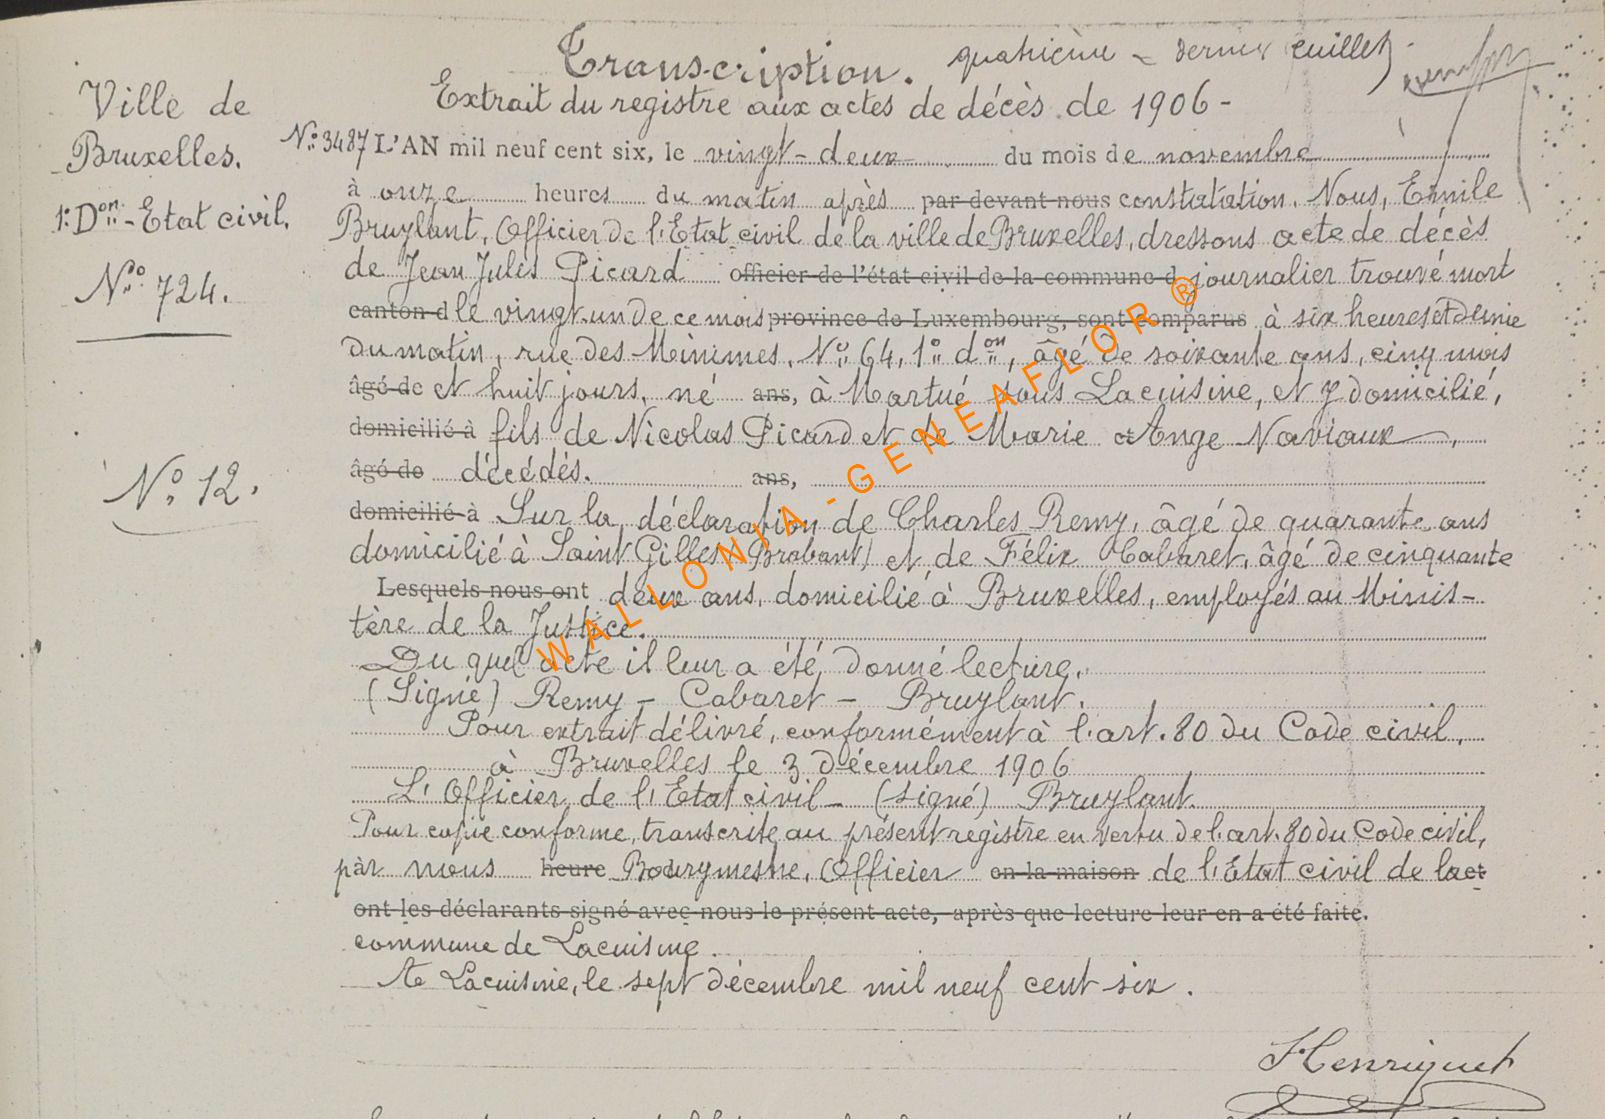 Transcription. quatrième - dernier feuillet
Extrait du registre aux actes de décès de 1906 -
Ville de
Bruxelles.
1e Don - Etat civil.
No 724.
No 12.
No 3487 L'AN mil neuf cent six, le vingt-deux du mois de novembre
à onze heures du matin après par devant nous constatation. Nous, Emile
Bruylant, Officier de l'Etat civil de la ville de Bruxelles, dressons acte de décès
de Jean Jules Picard officier de l'état civil de la commune d journalier trouvé mort
canton d le vingt-un de ce mois province de Luxembourg, sont comparus à six heures et demie
du matin, rue des Minimes, No 64, 1e don, âgé de soixante ans, cinq mois
âgé de et huit jours, né ans, à Martué sous Lacuisine, et y domicilié,
domicilié à fils de Nicolas Picard et de Marie Ange Naviaux,
âgé de décédés. ans,
domicilié à Sur la déclaration de Charles Remy, âgé de quarante ans
domicilié à Saint Gilles (Brabant) et de Félix Cabaret, âgé de cinquante
Lesquels nous ont deux ans, domicilié à Bruxelles, employés au Minis-
tère de la Justice.
Du quel acte il leur a été donné lecture.
(Signé) Remy - Cabaret - Bruylant.
Pour extrait délivré, conformément à l'art. 80 du Code civil,
à Bruxelles le 3 décembre 1906
L'Officier de l'Etat civil - (signé) Bruylant.
Pour copie conforme, transcrite au présent registre en vertu de l'art. 80 du Code civil,
par nous heure Officier en la maison de l'Etat civil de la et
ont les déclarants signé avec nous le présent acte, après que lecture leur en a été faite.
commune de Lacuisine.
A Lacuisine, le sept décembre mil neuf cent six.
Henriquet
WALLONIA - GENEAFLOR ®